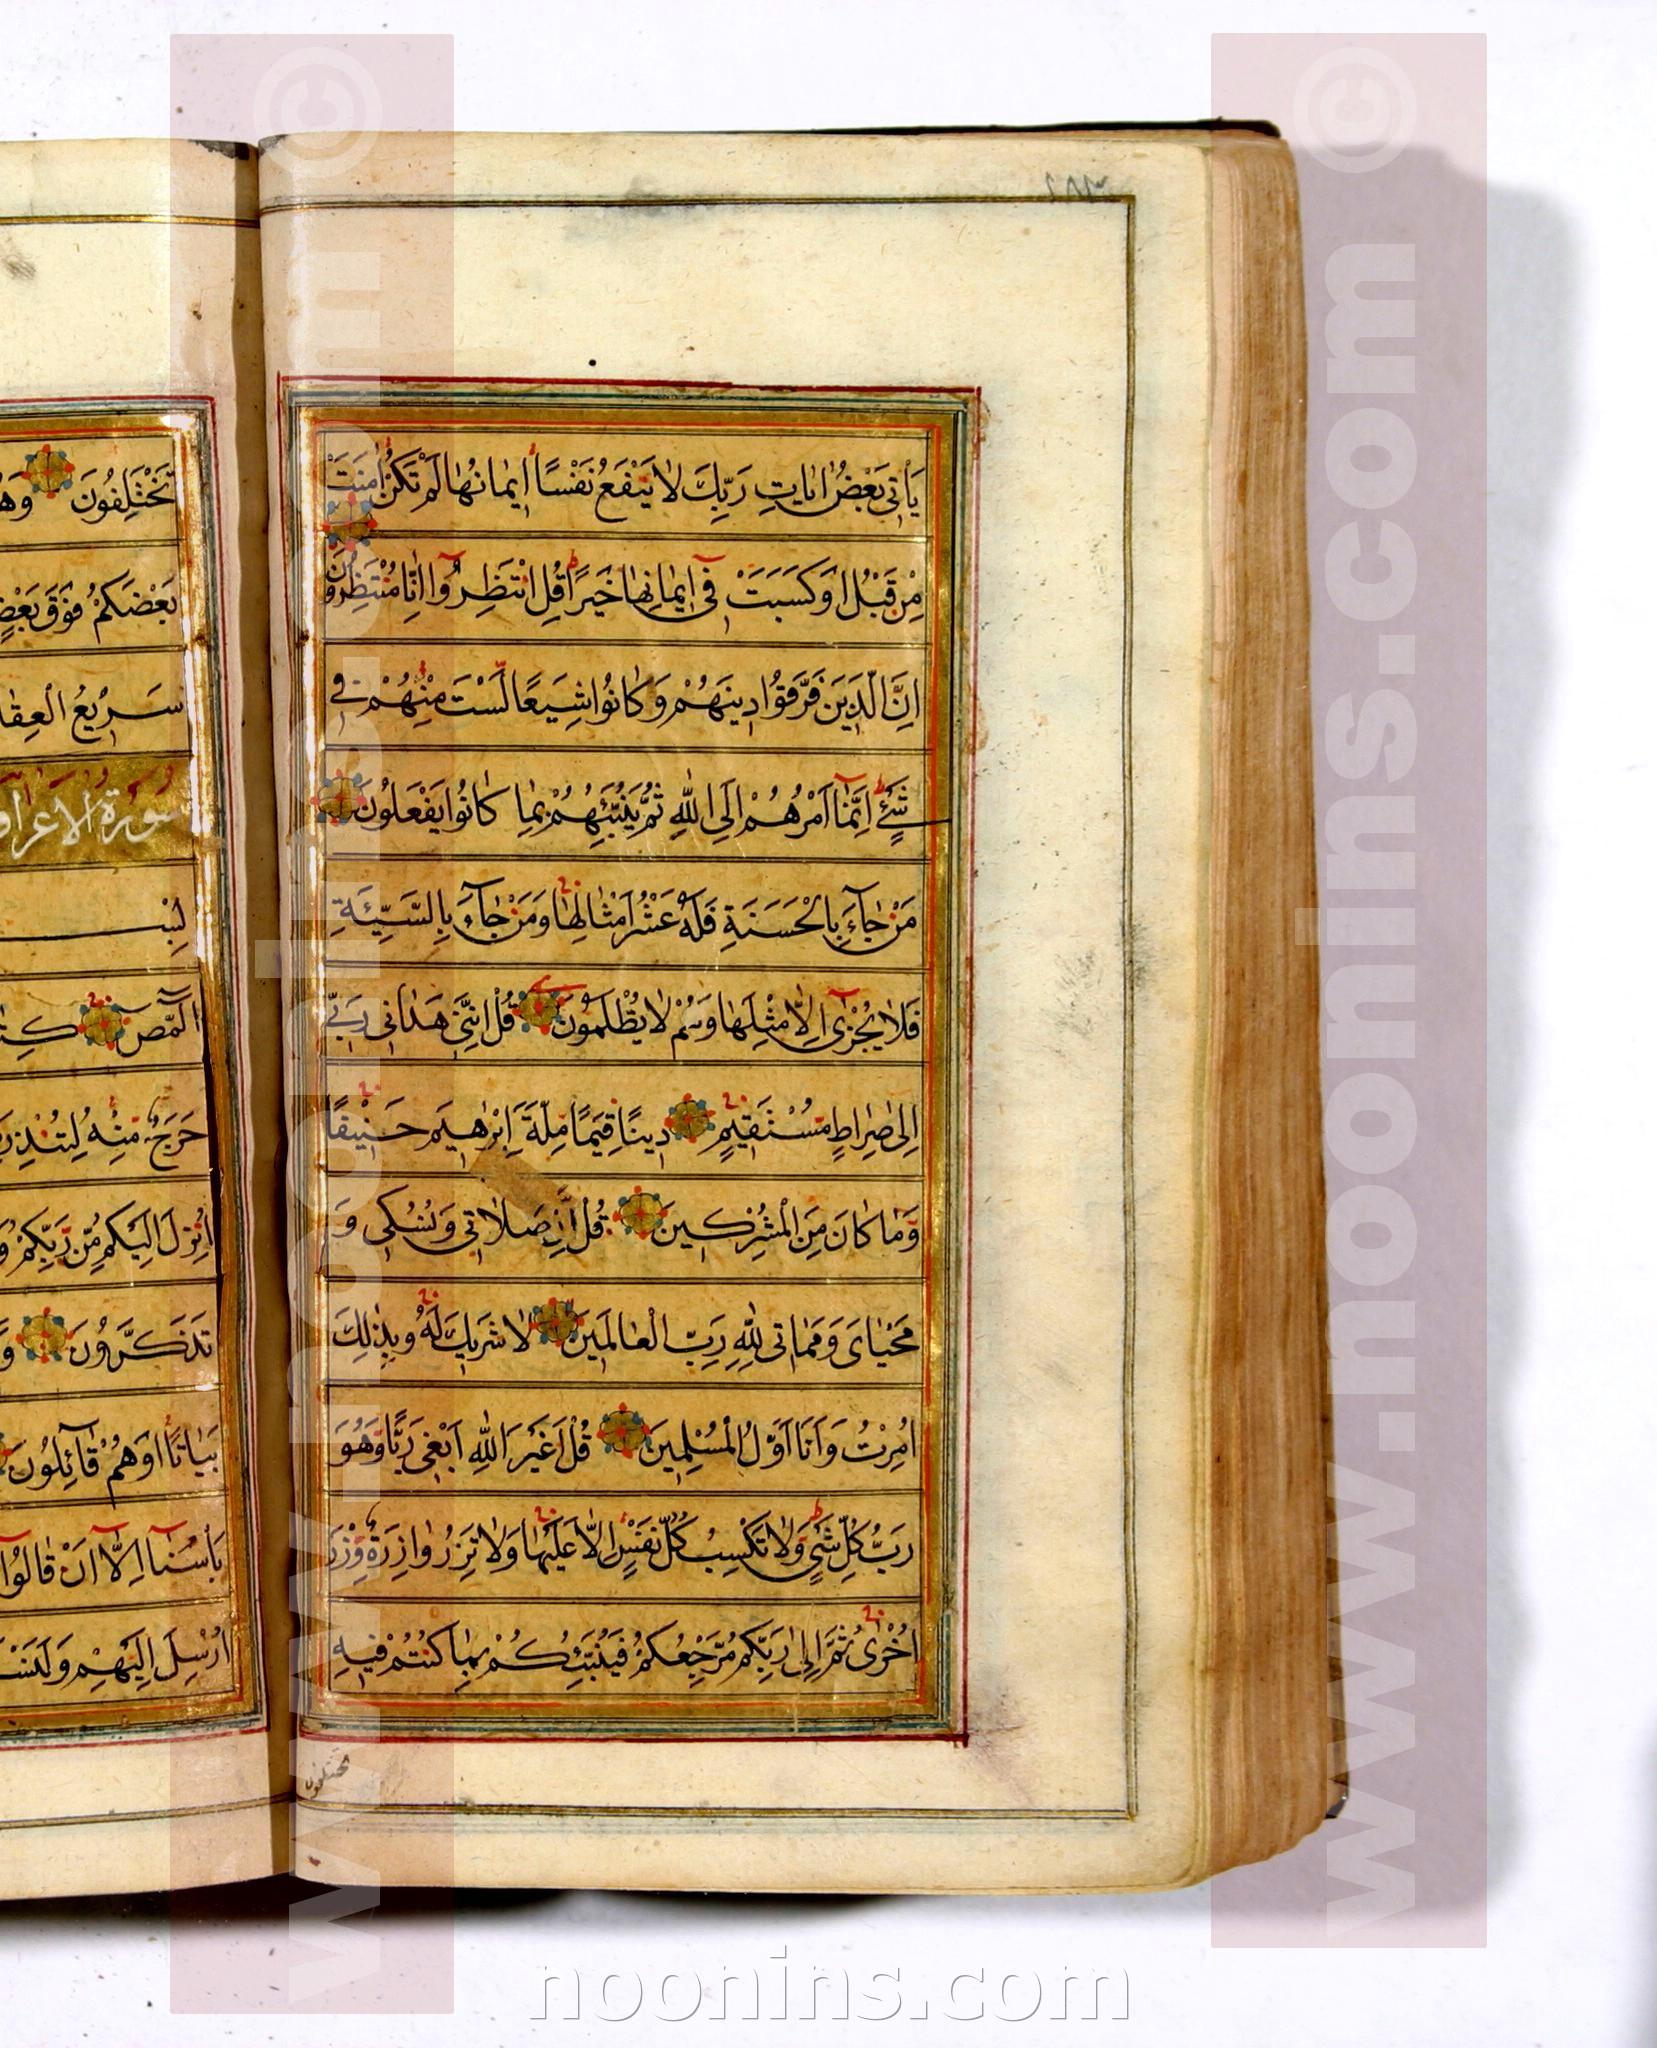 ١٨٣
يَأْتِي بَعْضُ اٰيٰاتِ رَبِّكَ لاٰ يَنْفَعُ نَفْسًا اِيمٰانُهٰا لَمْ تَكُنْ اٰمَنَتْ
مِنْ قَبْلُ اَوْ كَسَبَتْ فِي اِيمٰانِهٰا خَيْرًا قُلِ انْتَظِرُوٓا اِنّٰا مُنْتَظِرُونَ
اِنَّ الَّذِينَ فَرَّقُوا دِينَهُمْ وَ كٰانُوا شِيَعًا لَسْتَ مِنْهُمْ فِي
شَيْءٍ اِنَّمٰٓا اَمْرُهُمْ اِلَى اللّٰهِ ثُمَّ يُنَبِّئُهُمْ بِمٰا كٰانُوا يَفْعَلُونَ
مَنْ جٰٓاءَ بِالْحَسَنَةِ فَلَهُ عَشْرُ اَمْثٰالِهٰا وَ مَنْ جٰٓاءَ بِالسَّيِّئَةِ
فَلاٰ يُجْزٰى اِلاّٰ مِثْلَهٰا وَ هُمْ لاٰ يُظْلَمُونَ قُلْ اِنَّنِي هَدٰانِي رَبِّي
اِلىٰ صِرٰاطٍ مُسْتَقِيمٍ دِينًا قِيَمًا مِلَّةَ اِبْرٰهِيمَ حَنِيفًا
وَ مٰا كٰانَ مِنَ الْمُشْرِكِينَ قُلْ اِنَّ صَلاٰتِي وَ نُسُكِي وَ
مَحْيٰايَ وَ مَمٰاتِي لِلّٰهِ رَبِّ الْعٰالَمِينَ لاٰ شَرِيكَ لَهُ وَ بِذٰلِكَ
اُمِرْتُ وَ اَنَا اَوَّلُ الْمُسْلِمِينَ قُلْ اَغَيْرَ اللّٰهِ اَبْغِي رَبًّا وَ هُوَ
رَبُّ كُلِّ شَيْءٍ وَ لاٰ تَكْسِبُ كُلُّ نَفْسٍ اِلاّٰ عَلَيْهٰا وَ لاٰ تَزِرُ وٰازِرَةٌ وِزْرَ
اُخْرٰى ثُمَّ اِلىٰ رَبِّكُمْ مَرْجِعُكُمْ فَيُنَبِّئُكُمْ بِمٰا كُنْتُمْ فِيهِ
تختلفون
تَخْتَلِفُونَ وَ
بَعْضَكُمْ فَوْقَ بَعْضٍ
سَرِيعُ
سُورَةُ
الٓمٓصٓ
حَرَجٌ مِنْهُ لِتُنْذِرَ
اُنْزِلَ اِلَيْكُمْ مِنْ رَبِّكُمْ
تَذَكَّرُونَ
بَيٰاتًا اَوْ هُمْ قٰٓائِلُونَ
بَأْسُنٰٓا اِلآّٰ اَنْ قٰالُوٓا
اُرْسِلَ اِلَيْهِمْ
© www.noonins.com
© www.noonins.com
noonins.com